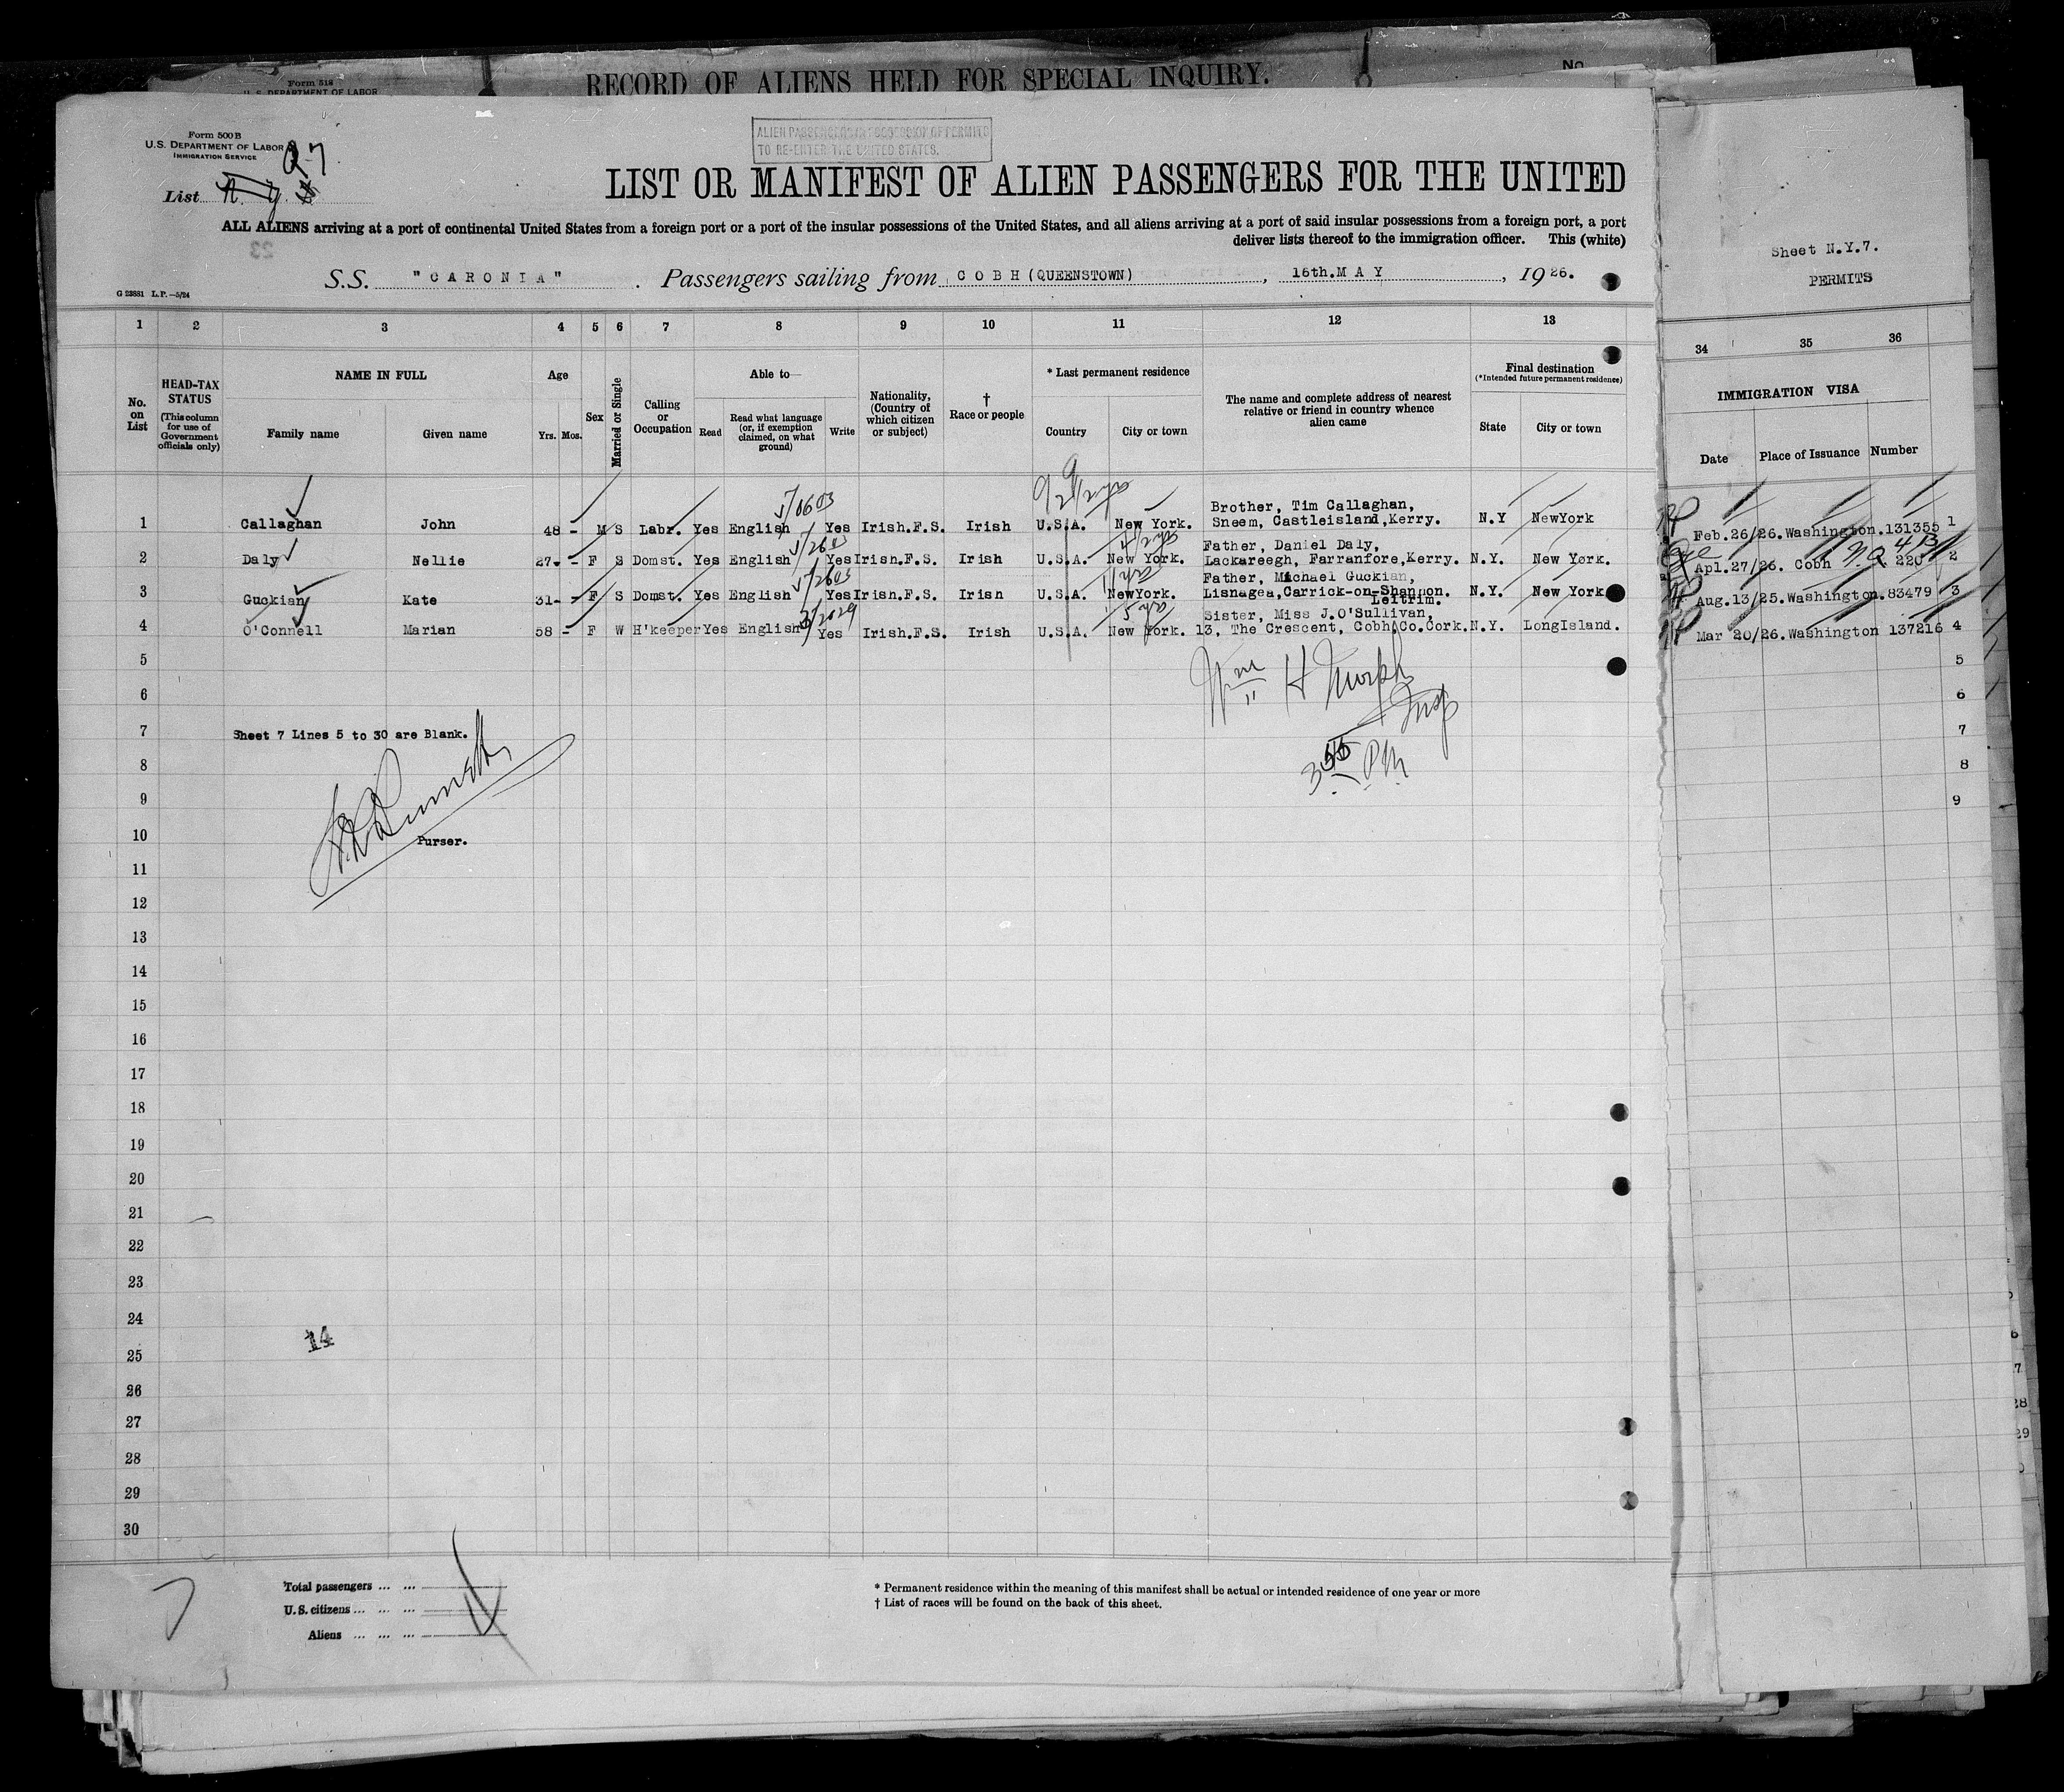 Form 519
U. S. DEPARTMENT OF LABOR
RECORD OF ALIENS HELD FOR SPECIAL INQUIRY.
No.
Form 500 B
U.S. DEPARTMENT OF LABOR
IMMIGRATION SERVICE
List
ALIEN PASSENGERS IN POSSESSION OF PERMITS
TO RE-ENTER THE UNITED STATES.
LIST OR MANIFEST OF ALIEN PASSENGERS FOR THE UNITED
ALL ALIENS arriving at a port of continental United States from a foreign port or a port of the insular possessions of the United States, and all aliens arriving at a port of said insular possessions from a foreign port, a port
deliver lists thereof to the immigration officer. This (white)
23
S.S. "CARONIA". Passengers sailing from COBH (QUEENSTOWN), 16th.MAY, 1926.
G 23881 L.P.—5/24
Sheet N.Y.7.
PERMITS
1 2 3 4 5 6 7 8 9 10 11 12 13 34 35 36
No. on List
HEAD-TAX STATUS (This column for use of Government officials only)
NAME IN FULL
Family name Given name
Age
Yrs. Mos.
Sex
Married or Single
Calling or Occupation
Able to—
Read
Read what language (or, if exemption claimed, on what ground)
Write
Nationality, (Country of which citizen or subject)
† Race or people
* Last permanent residence
Country City or town
The name and complete address of nearest relative or friend in country whence alien came
Final destination
(*Intended future permanent residence)
State City or town
IMMIGRATION VISA
Date Place of Issuance Number
Brother, Tim Callaghan,
1 Callaghan John 48 - M S Labr. Yes English Yes Irish.F.S. Irish U.S.A. New York. Sneem, Castleisland,Kerry. N.Y NewYork Feb.26/26.Washington.131355 1
Father, Daniel Daly,
2 Daly Nellie 27- - F S Domst. Yes English Yes Irish.F.S. Irish U.S.A. New York. Lackareegh, Farranfore,Kerry. N.Y. New York. Apl.27/26. Cobh 220 2
Father, Michael Guckian,
3 Guckian Kate 31- - F S Domst. Yes English Yes Irish.F.S. Irish U.S.A. NewYork. Lisnagea,Carrick-on-Shannon. Leitrim. N.Y. New York Aug.13/25.Washington.83479 3
Sister, Miss J.O'Sullivan,
4 O'Connell Marian 58 - F W H'keeper Yes English Yes Irish.F.S. Irish U.S.A. New York. 13, The Crescent, Cobh Co.Cork. N.Y. LongIsland. Mar 20/26.Washington 137216 4
5 5
6 6
7 Sheet 7 Lines 5 to 30 are Blank. 7
8 8
9 9
10 Purser.
11
12
13
14
15
16
17
18
19
20
21
22
23
24
14
25
26
27
28
29
30
Total passengers ... ...
U.S. citizens ... ... ...
Aliens ... ... ...
* Permanent residence within the meaning of this manifest shall be actual or intended residence of one year or more
† List of races will be found on the back of this sheet.